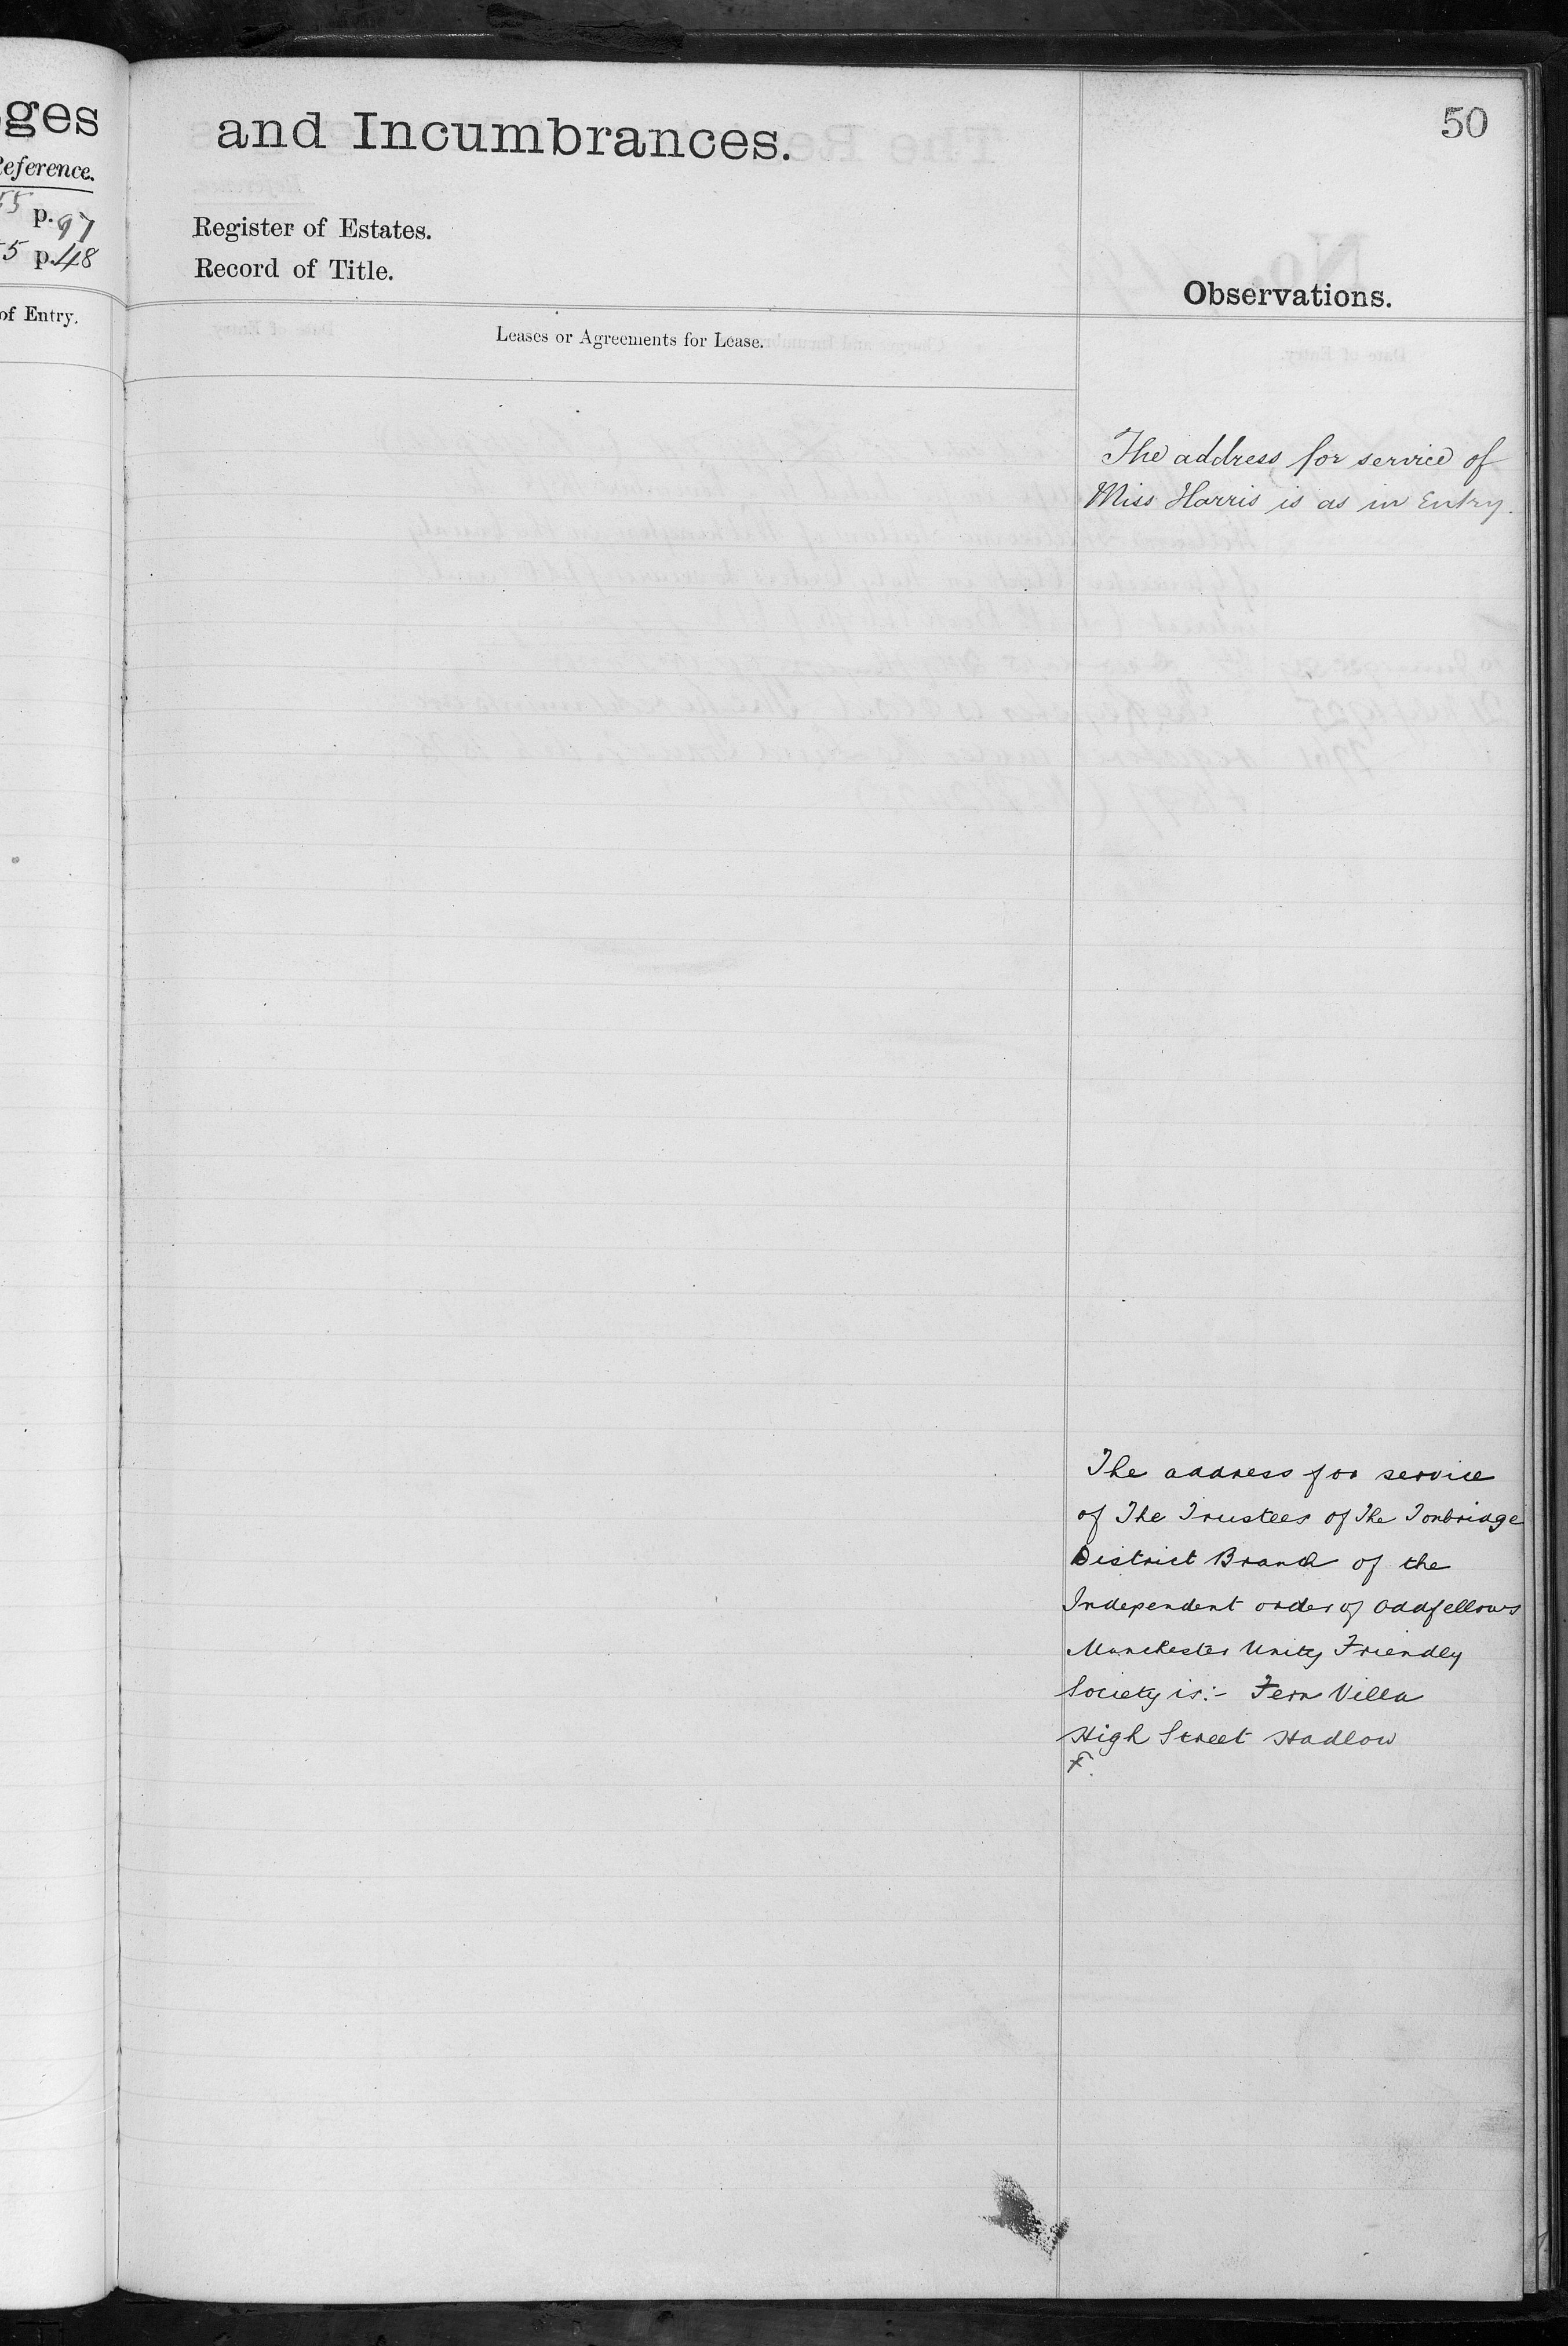 ges
Reference.
55 p. 97
5 p. 48
of Entry.
and Incumbrances.
50
Register of Estates.
Record of Title.
Observations.
Leases or Agreements for Lease.
The address for service of
Miss Harris is as in Entry.
The address for service
of The Trustees of The Tonbridge
District Branch of the
Independent order of Oddfellows
Manchester Unity Friendly
Society is:- Fern Villa
High Street Hadlow